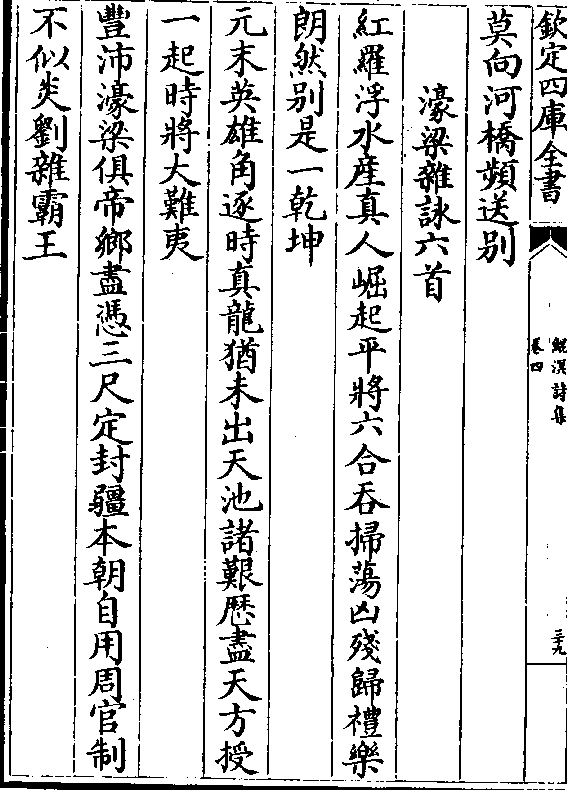 欽定四庫全書
鯤溟詩集
卷四
三十九
莫向河橋頻送别
濠梁雜詠六首
紅羅浮水産真人崛起平將六合吞掃蕩凶殘歸禮樂
朗然别是一乾坤
元末英雄角逐時真龍猶未出天池諸艱歴盡天方授
一起時將大難夷
豐沛濠梁俱帝鄉盡憑三尺定封疆本朝自用周官制
不似炎劉雜霸王